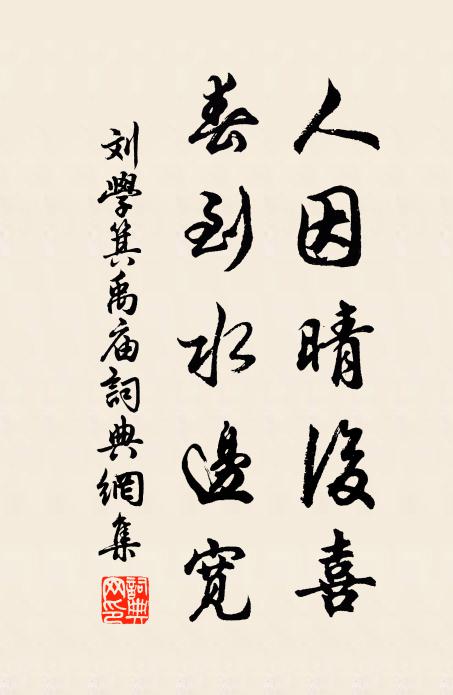 人因晴後喜
春到水邊寬
刘學箕禹庙詞典網集
詞典網印